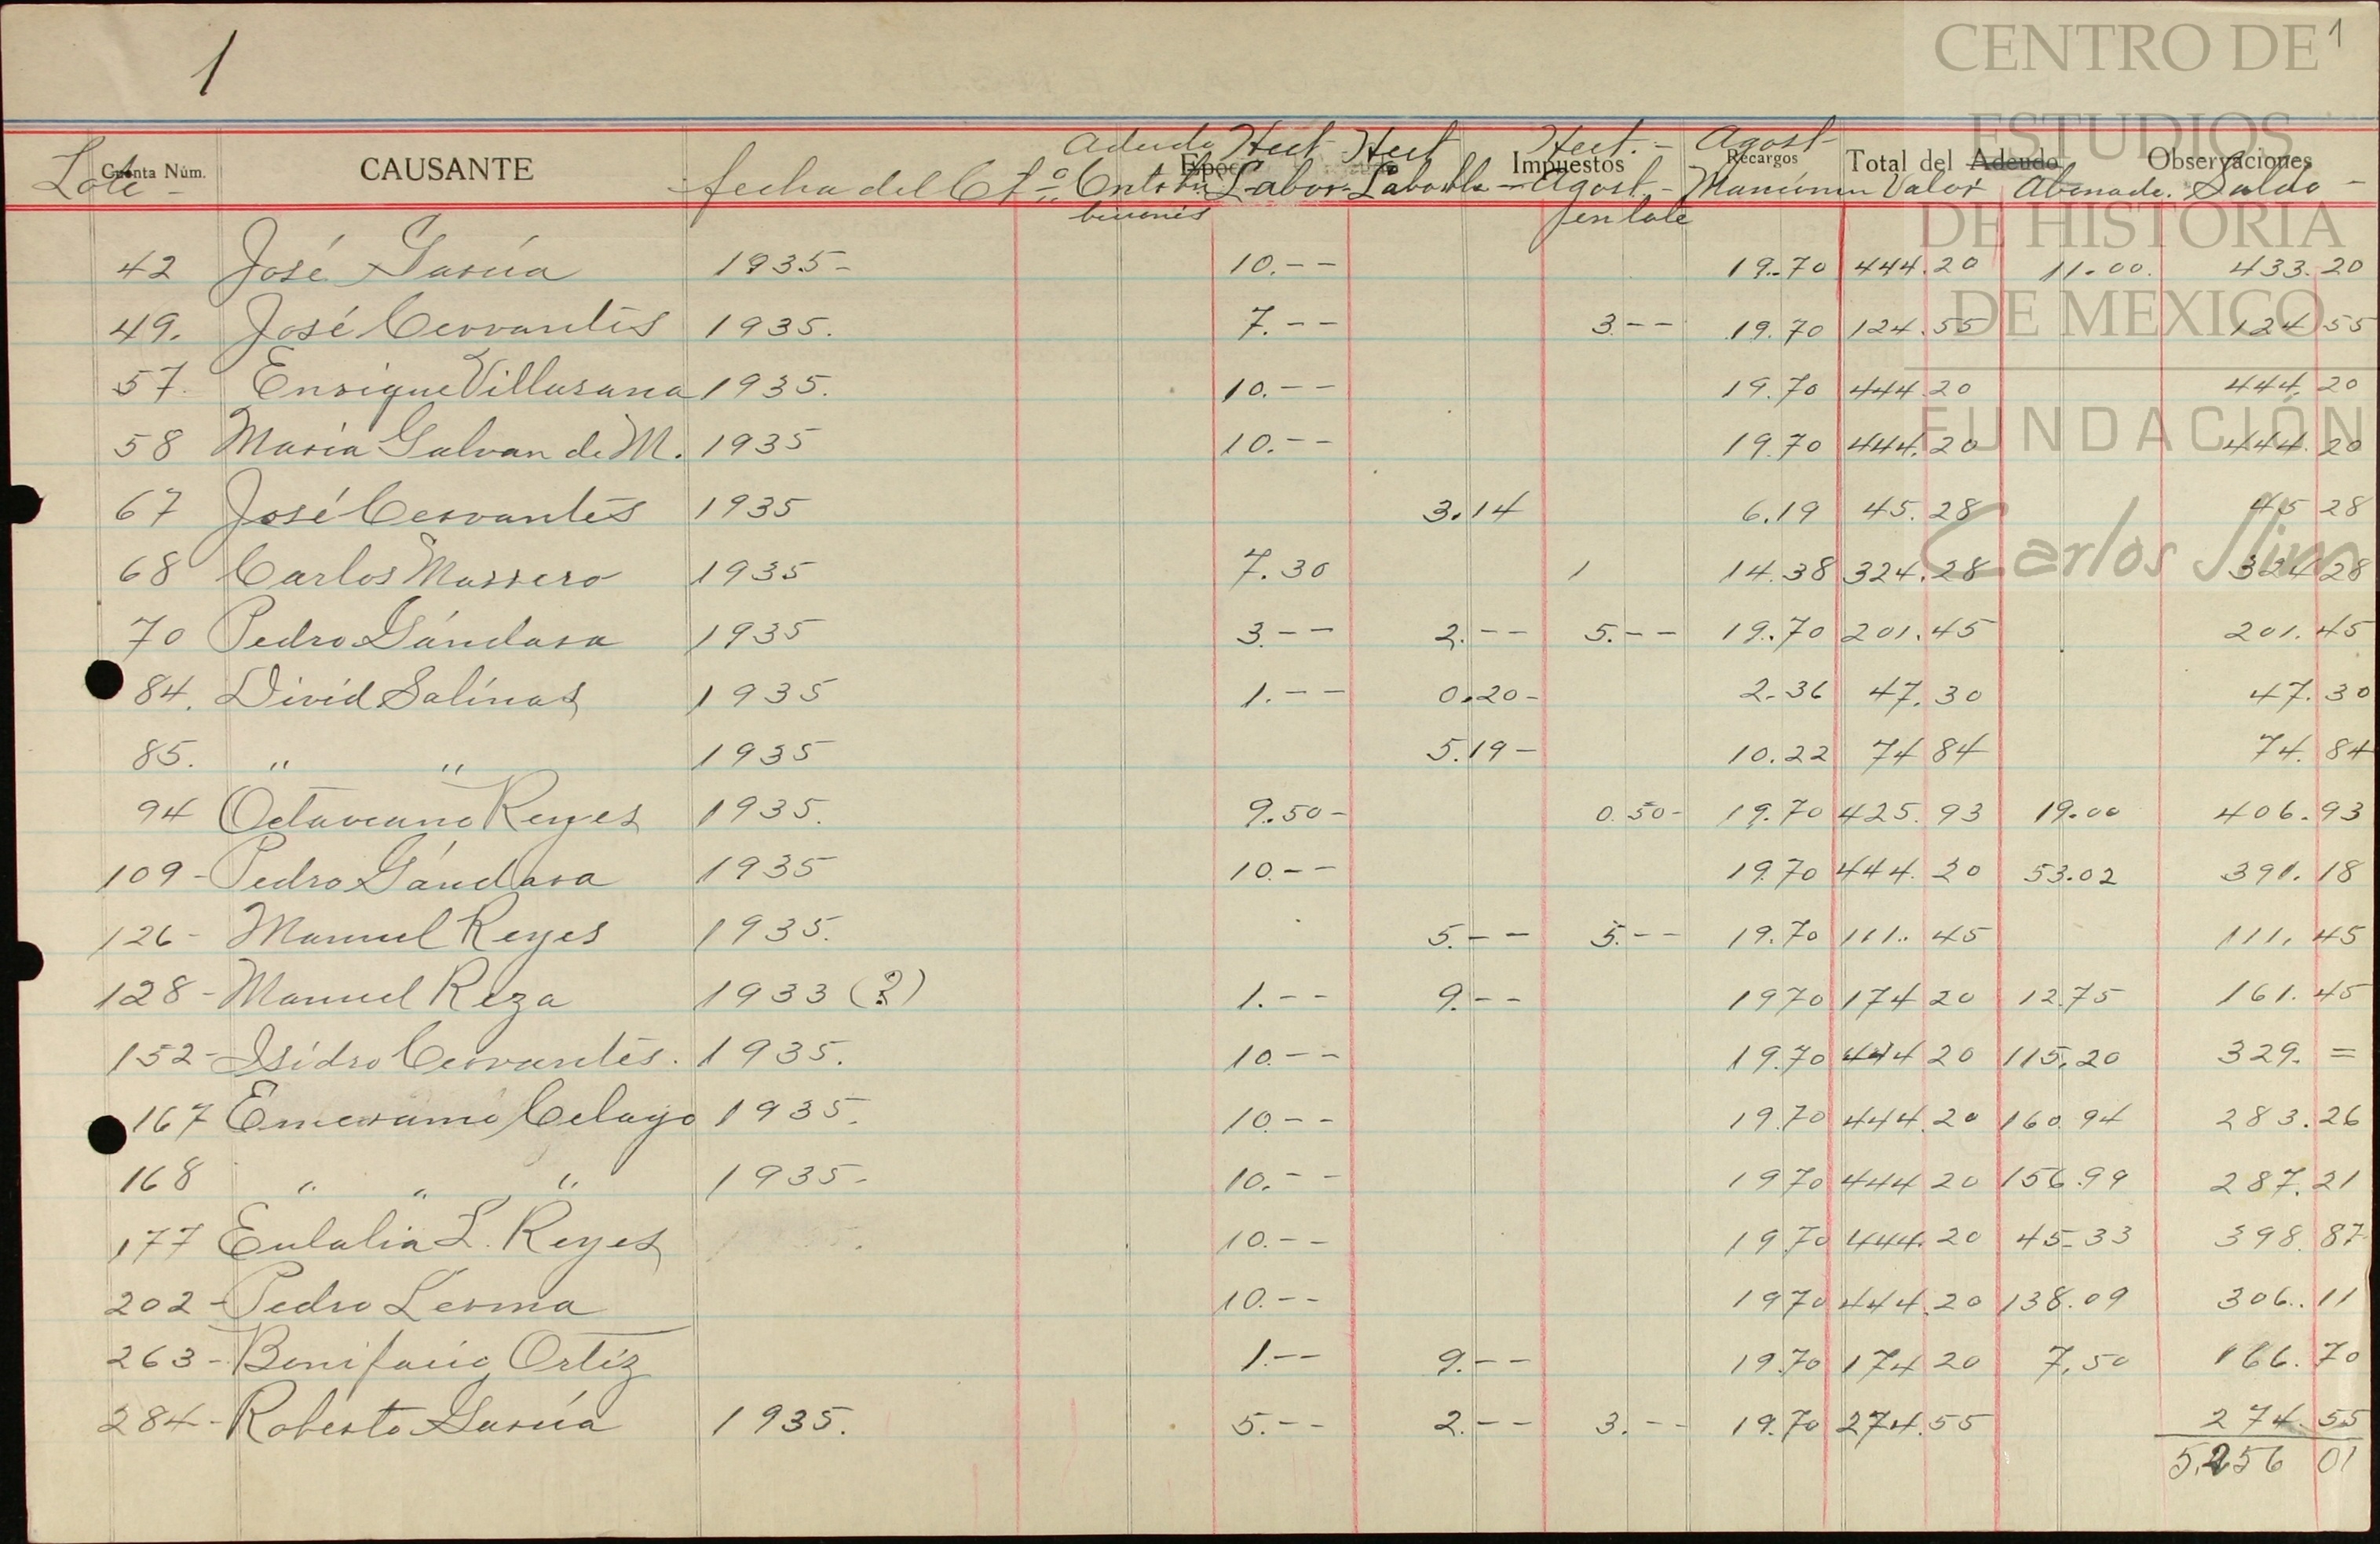 1
1
CENTRO DE
ESTUDIOS
DE HISTORIA
DE MEXICO
FUNDACIÓN
Carlos Slim
Adeudo Hect Hect Hect.- Agost-
Cuenta Núm. CAUSANTE Epoca Impuestos Recargos Total del Adeudo Observaciones
Lote - fecha del Cto. Contri Labor- Laborble - Agost.- Mancomun Valor Abonado. Saldo -
buciones en lote
42 José García 1935- 10.-- 19.70 444.20 11.00. 433.20
49. José Cervantes 1935. 7.-- 3.-- 19.70 124.55 124 55
57. Enrique Villasana 1935. 10.-- 19.70 444.20 444.20
58 María Galvan de M. 1935 10.-- 19.70 444.20 444.20
67 José Cervantes 1935 3.14 6.19 45.28 45 28
68 Carlos Marrero 1935 7.30 1 14.38 324.28 324 28
70 Pedro Gándara 1935 3-- 2.-- 5.-- 19.70 201.45 201.45
84. Divid Salinas 1935 1.-- 0.20- 2.36 47.30 47.30
85. " " 1935 5.19- 10.22 74 84 74.84
94 Octaviano Reyes 1935. 9.50- 0.50- 19.70 425.93 19.00 406.93
109- Pedro Gándara 1935 10.-- 19.70 444.20 53.02 391.18
126- Manuel Reyes 1935. 5.-- 5.-- 19.70 111.45 111.45
128- Manuel Reza 1933 (?) 1.-- 9.-- 19 70 174 20 12.75 161.45
152- Isidro Cervantes. 1935. 10.-- 19.70 444 20 115.20 329. =
167 Emeramo Celayo 1935. 10.-- 19.70 444.20 160.94 283.26
168 " " " 1935- 10.-- 19 70 444 20 156.99 287.21
177 Eulalia L. Reyes 10.-- 19 70 444.20 45.33 398.87
202- Pedro Lerma 10.-- 19 70 444.20 138.09 306.11
263- Bonifacio Ortiz 1.-- 9.-- 19.70 174 20 7.50 166.70
284- Roberto García 1935. 5.-- 2.-- 3.-- 19.70 274.55 274.55
5,256 01